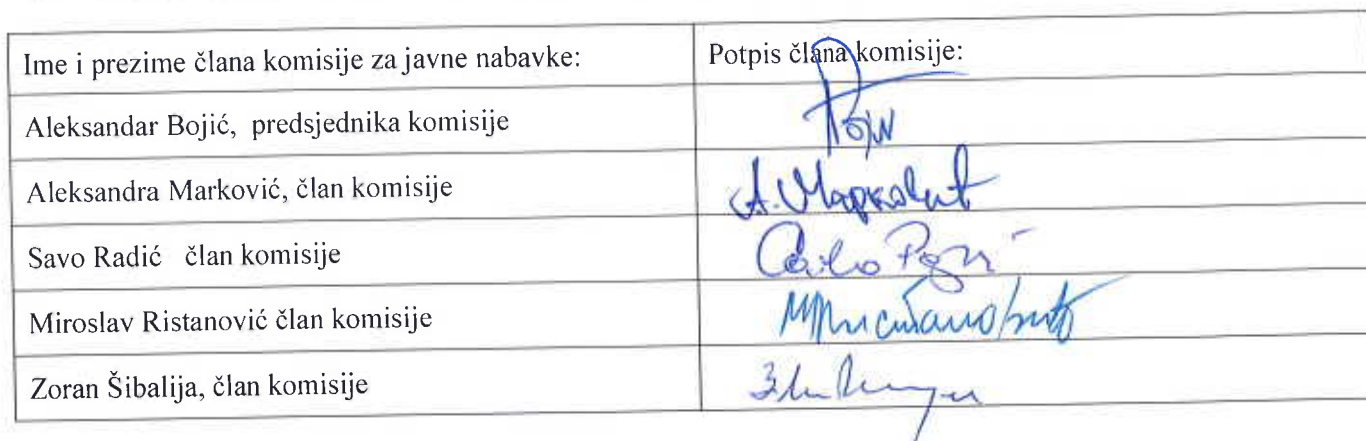 Ime i prezime člana komisije za javne nabavke: Potpis člana komisije:
Aleksandar Bojić, predsjednika komisije
Aleksandra Marković, član komisije А. Марковић
Savo Radić član komisije
Miroslav Ristanović član komisije
Zoran Šibalija, član komisije